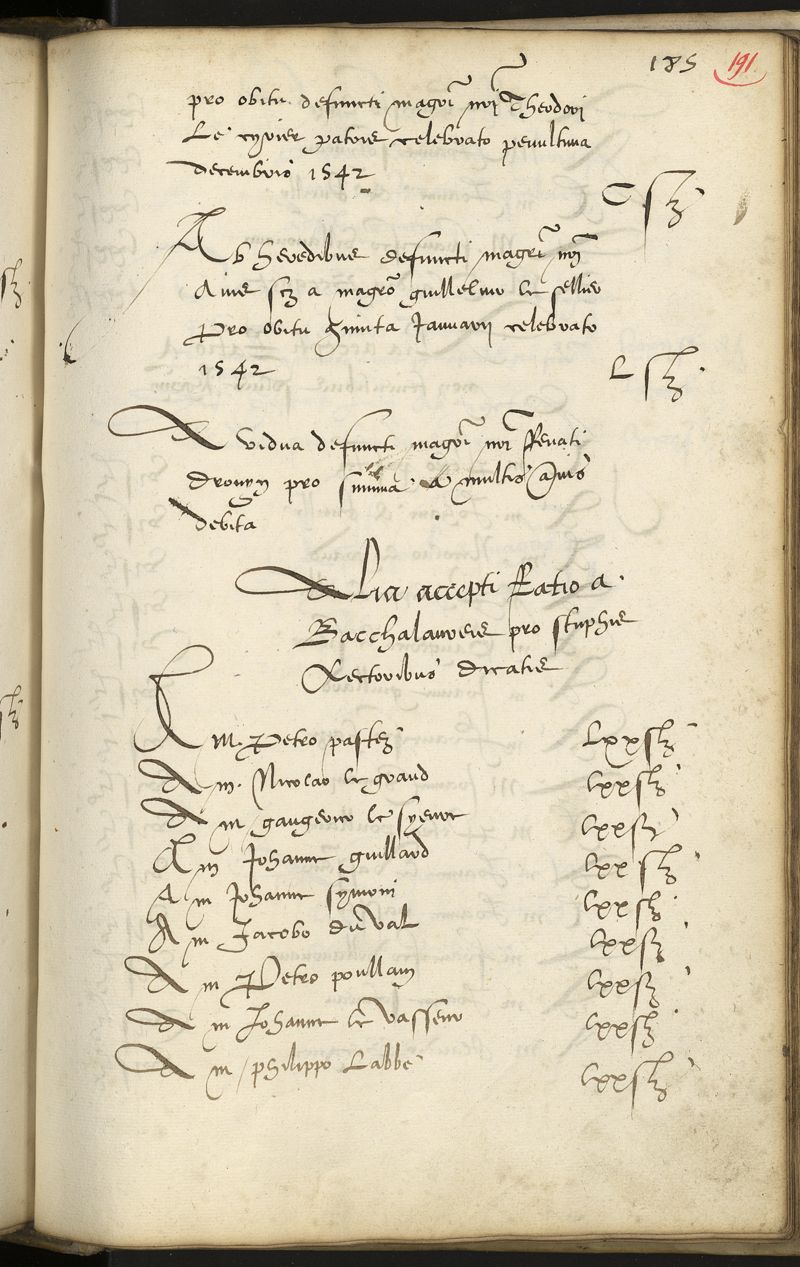 185 191
pro obitu defuncti magri nri Theodori
Le cyrier patris celebrato penultima
decembris 1542
C s
Ab heredibus defuncti magri nri
scz a magro guillelmo le sellier
Pro obitu Januarii celebrato
1542
L s
A vidua defuncti magri nri Renati
drouyn pro summa a multis annis
debita
Alia accepti Ratio a
Bacchalaureis pro stuphis
Rectoribus dicatis
A m Petro pastez lxx s
A m. Nicolao legrand lxx s
A m gaugerico le lxx s
A m Johanne guillard lxx s
A m Johanne symoni lxx s
A m Jacobo du val lxx s
A m Petro poullain lxx s
A m Johanne le vasseur lxx s
A m philippo Labbe lxx s